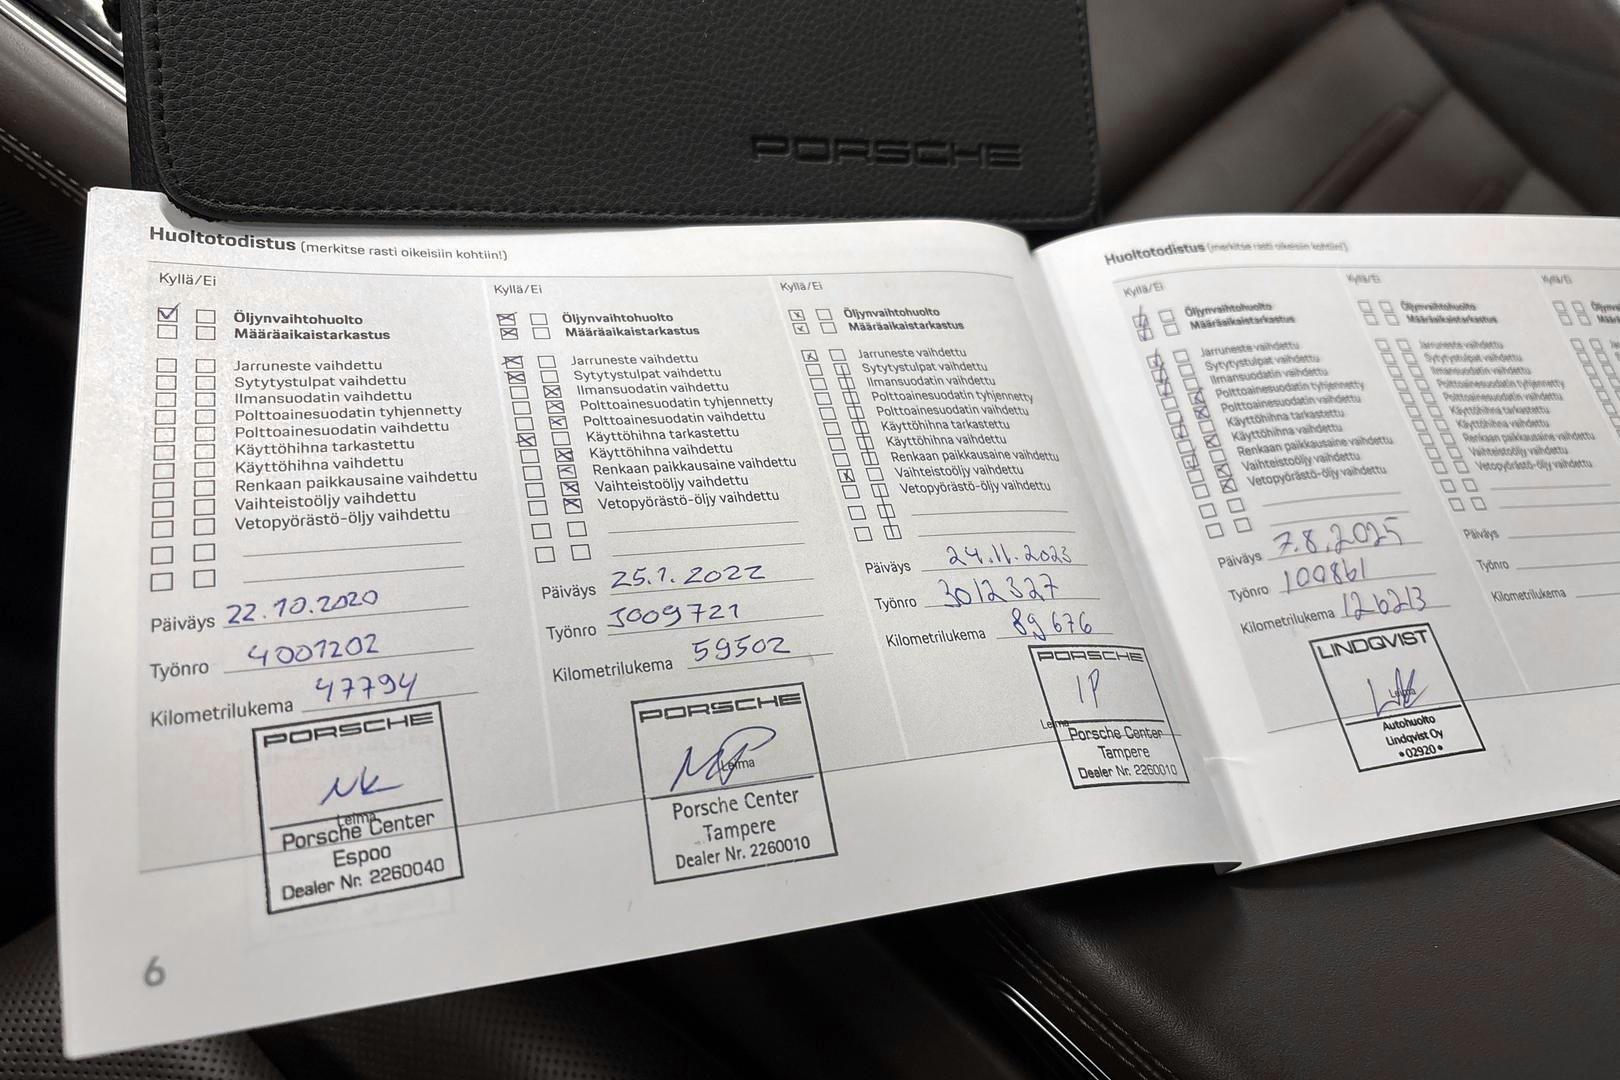 PORSCHE
Huoltotodistus (merkitse rasti oikeisiin kohtiin!)
Kyllä/Ei
Öljynvaihtohuolto
Määräaikaistarkastus
Jarruneste vaihdettu
Sytytystulpat vaihdettu
Ilmansuodatin vaihdettu
Polttoainesuodatin tyhjennetty
Polttoainesuodatin vaihdettu
Käyttöhihna tarkastettu
Käyttöhihna vaihdettu
Renkaan paikkausaine vaihdettu
Vaihteistoöljy vaihdettu
Vetopyörästö-öljy vaihdettu
Päiväys 22.10.2020
Työnro 4001202
Kilometrilukema 47794
PORSCHE
Leima
Porsche Center
Espoo
Dealer Nr. 2260040
Kyllä/Ei
Öljynvaihtohuolto
Määräaikaistarkastus
Jarruneste vaihdettu
Sytytystulpat vaihdettu
Ilmansuodatin vaihdettu
Polttoainesuodatin tyhjennetty
Polttoainesuodatin vaihdettu
Käyttöhihna tarkastettu
Käyttöhihna vaihdettu
Renkaan paikkausaine vaihdettu
Vaihteistoöljy vaihdettu
Vetopyörästö-öljy vaihdettu
Päiväys 25.1.2022
Työnro 3009721
Kilometrilukema 59502
PORSCHE
Leima
Porsche Center
Tampere
Dealer Nr. 2260010
Kyllä/Ei
Öljynvaihtohuolto
Määräaikaistarkastus
Jarruneste vaihdettu
Sytytystulpat vaihdettu
Ilmansuodatin vaihdettu
Polttoainesuodatin tyhjennetty
Polttoainesuodatin vaihdettu
Käyttöhihna tarkastettu
Käyttöhihna vaihdettu
Renkaan paikkausaine vaihdettu
Vaihteistoöljy vaihdettu
Vetopyörästö-öljy vaihdettu
Päiväys 24.11.2023
Työnro 3012327
Kilometrilukema 89676
PORSCHE
Leima
Porsche Center
Tampere
Dealer Nr. 2260010
6
Huoltotodistus (merkitse rasti oikeisiin kohtiin!)
Kyllä/Ei
Öljynvaihtohuolto
Määräaikaistarkastus
Jarruneste vaihdettu
Sytytystulpat vaihdettu
Ilmansuodatin vaihdettu
Polttoainesuodatin tyhjennetty
Polttoainesuodatin vaihdettu
Käyttöhihna tarkastettu
Käyttöhihna vaihdettu
Renkaan paikkausaine vaihdettu
Vaihteistoöljy vaihdettu
Vetopyörästö-öljy vaihdettu
Päiväys 7.8.2025
Työnro 100861
Kilometrilukema 126213
LINDQVIST
Leima
Autohuolto
Lindqvist Oy
•02920•
Kyllä/Ei
Öljynvaihtohuolto
Määräaikaistarkastus
Jarruneste vaihdettu
Sytytystulpat vaihdettu
Ilmansuodatin vaihdettu
Polttoainesuodatin tyhjennetty
Polttoainesuodatin vaihdettu
Käyttöhihna tarkastettu
Käyttöhihna vaihdettu
Renkaan paikkausaine vaihdettu
Vaihteistoöljy vaihdettu
Vetopyörästö-öljy vaihdettu
Päiväys
Työnro
Kilometrilukema
Kyllä/Ei